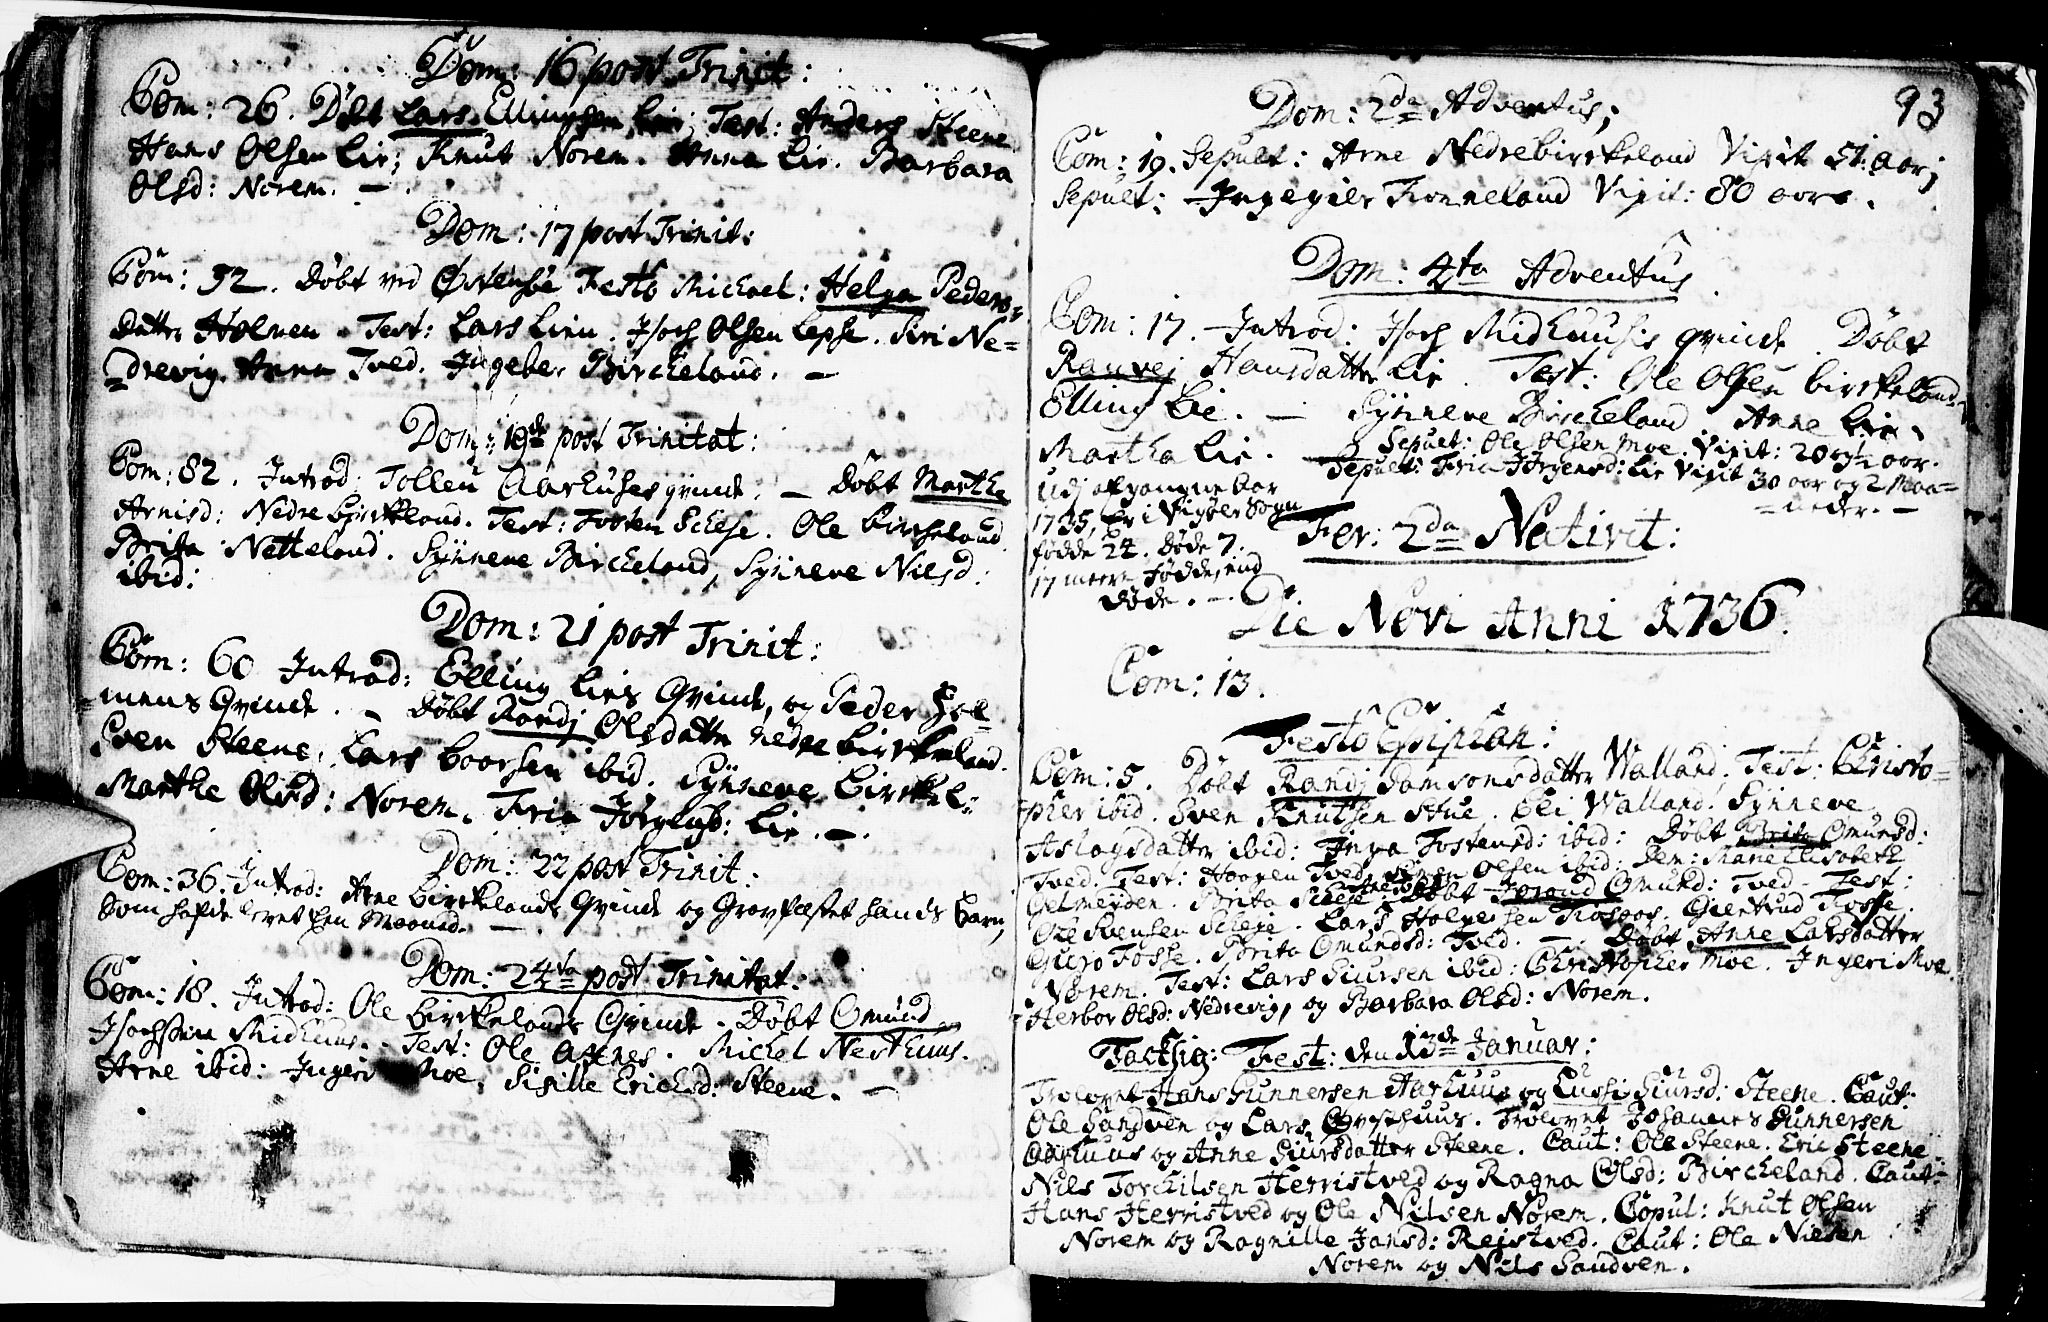 Dom: 16 post Trinit:
Com: 26. Döbt Lars Ellingsen Lie; Test: Anders Steene
Hans Olsen Lie; Knut Norem. Anna Lie. Barbara
Olsd: Norem. —
Dom: 17 post Trinit:
Com: 92. Döbt ved Festo Michael: Helga Peders-
Datter Holmen. Test: Lars Lien. Isach Olsen Lepse. Siri Ne=
=drevig. Anna Tved. Ingebor Birckeland. —
Dom: 19de post Trinitat:
Com: 82. Introd: Tollev Aarhuses qvinde. — Döbt Marthe
Arnisd: Nedre birkeland. Test: Tosten Scheie. Ole birckeland
Brita Netteland. Synneve Birckeland, Synneve Nielsd:
ibid:
Dom: 21 post Trinit:
Com: 60 Introd: Elling Lies Qvinde, og Peder Hol=
=mens Qvinde. — Döbt Randj Olsdatter nedre birkeland.
Sven Steene, Lars boorsen ibid. Synneve birckel=
Marthe Olsd: Norem. Siri Jörgensd: Lie. —.
Dom: 22 post Trinit:
Com: 36. Introd: Arne birckelands Qvinde og Gravfæstet hands barn,
som hafde levet een Maaned. —
Dom: 24ta post Trinitat:
Com: 18. Introd: Ole birckelands Qvinde. Döbt Omund
Isachsen Midhuus. Test: Ole Axnes. Michel Nesthuus.
Arne ibid: Ingeri Moe, Sisille Ericksd: Steene. —
93
Dom: 2da Adventus;
Com: 19. Sepult: Arne Nedrebirckeland Vixit 51: aar;
Sepult: Ingegier Fronneland Vixit: 80 aar.
Dom: 4ta Adventus
Com: 17. Introd: Isach Midhuuses qvinde. Döbt
Ranvej Hansdatter Lie. Test: Ole Olsen birckeland
Elling Lie. — Synneve Birckeland Anne Lie.
Martha Lie. Sepult: Ole Olsen Moe. Vixit: 20 og ½ aar.
Sepult: Siri Jörgensd: Lie Vixit 30 aar og 2 Maa=
=neder. —
Udj afgangne Aar
1735, Er i Vigöer Sogn
födde 24. Döde 7.
17 meere födde, end
döde. —
Fer: 2da Nativit:
Die Novi Anni 1736.
Com: 13.
Festo Epiphan:
Com: 5. Döbt Randj Samsonsdatter Walland. Test: Christo=
pher ibid. Sven Knutsen Stue. Eli Walland. Synneve
Aslagsdatter ibid: Inga Tostensd: ibid: Döbt Brita Omunsd:
Tved. Test: Haagen Tved, Olsen ibid: Dem: Marie Elisabeth
Gelmeyden. Brita Scheie. Döbt Joraand Omund: Tved. Test:
Ole Svensen Scheie. Lars Holgersen Giertrud Fosse.
Guro Fosse. Brita Omundsd: Tved. —. Döbt Anne Larsdatter
Norem. Test: Lars Siursen ibid: Christopher Moe. Ingeri Moe.
Herbor Olsd: Nedrevig, og Barbara Olsd: Norem.
Fest: den 13de Januar:
Trolovet Hans Gunnersen Aarhuus og Lussi Siursd: Steene. Caut:
Ole Sandven og Lars Øvsthuus. Trolovet Johannes Gunnersen
Aarhuus og Anne Siursdatter Steene. Caut: Ole Steene. Eric Steene.
Nils Torchilsen Herristved og Ragna Olsd: Birckeland. Caut:
Hans Herristved og Ole Nilsen Norem. Copul: Knut Olsen
Norem og Ragnille Jansd: Reistved. Caut: Ole Nielsen
Norem og Nils Sandven.